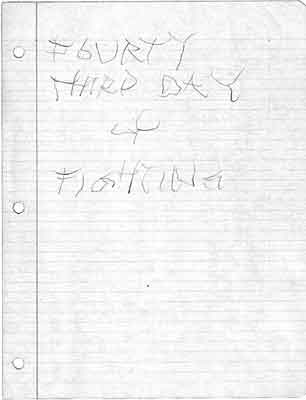 FOURTY
THIRD DAY
of
FIGHTING